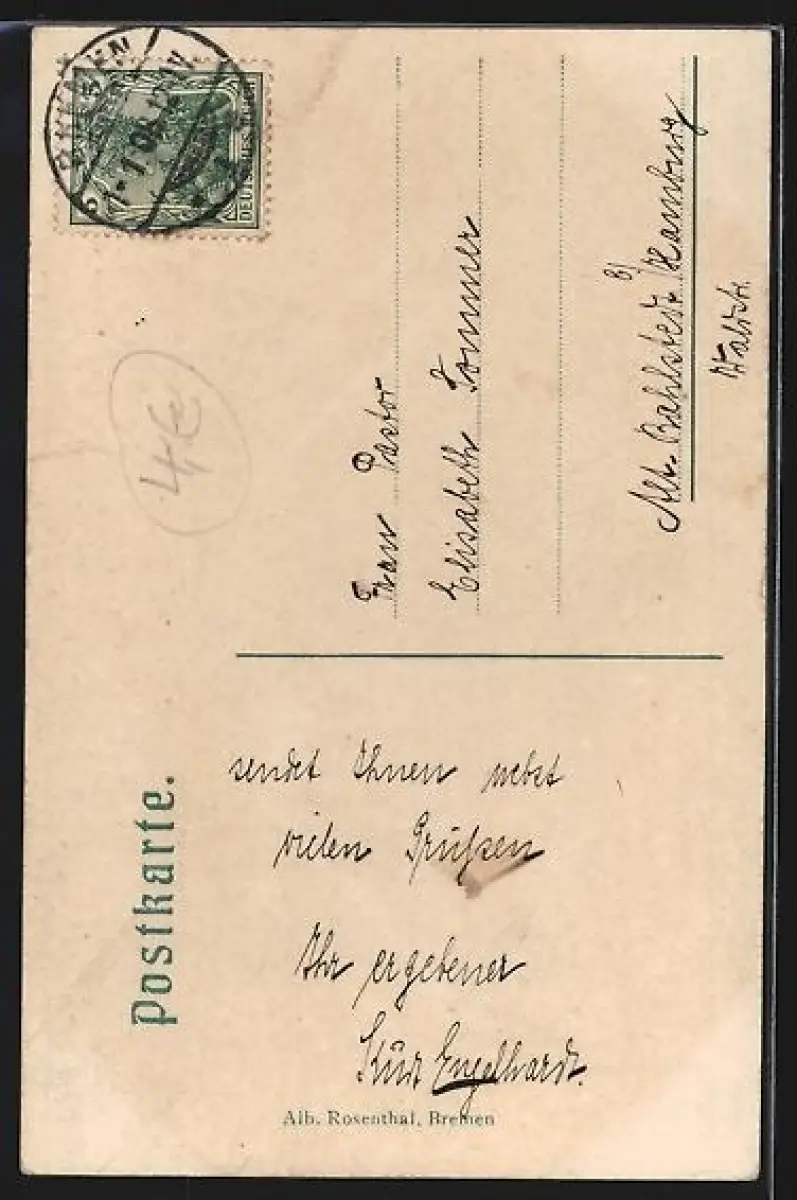 Postkarte.
BREMEN
5
5
DEUTSCHES REICH
4,-€
Frau Pastor
Elisabeth Sommer
Alt-Rahlstedt b/ Hamburg
Waldstr.
sendet Ihnen nebst
vielen Grüßen
Ihr ergebener
Kurt Engelhardt.
Alb. Rosenthal, Bremen